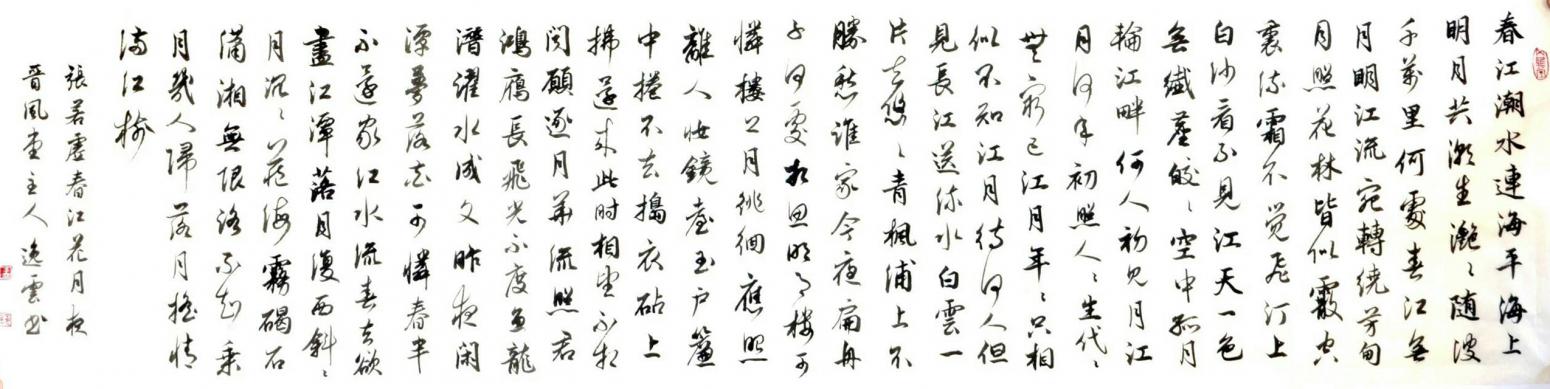 春江潮水連海平海上
明月共潮生灩〻随波
千萬里何處春江無
月明江流宛轉繞芳甸
月照花林皆似霰空
裏流霜不觉飛汀上
白沙看不見江天一色
無纖塵皎〻空中孤月
輪江畔何人初見月江
月何年初照人〻生代〻
無窮已江月年〻只相
似不知江月待何人但
見長江送流水白雲一
片去悠〻青楓浦上不
勝愁誰家今夜扁舟
子何處相思明月樓可
憐樓上月徘徊應照
離人妝鏡臺玉户簾
中捲不去搗衣砧上
拂還来此时相望不相
闻願逐月華流照君
鴻雁長飛光不度魚龍
潛躍水成文昨夜闲
潭夢落花可憐春半
不還家江水流春去欲
盡江潭落月復西斜〻
月沉〻藏海霧碣石
瀟湘無限路不知乘
月幾人歸落月搖情
滿江樹
張若虛春江花月夜
晉風堂主人逸雲书